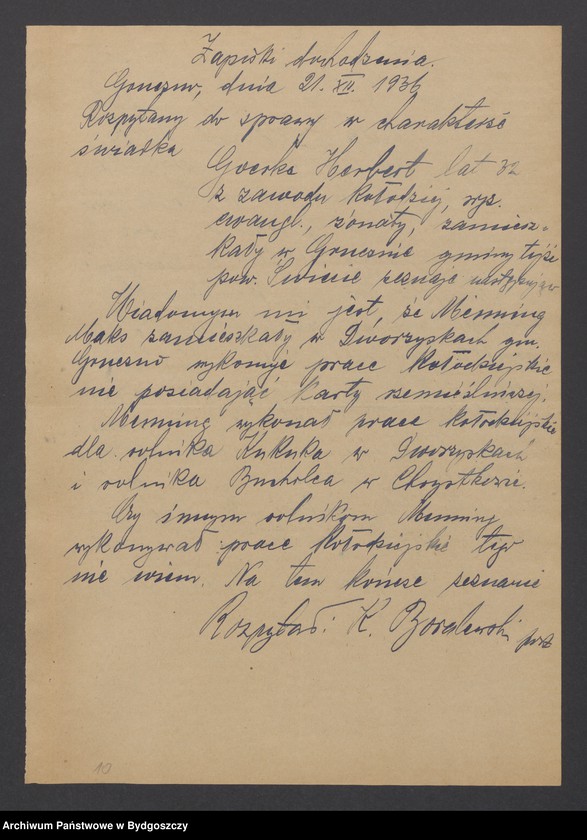 Zapiski dochodzenia.
Gruczno, dnia 21. XII. 1936
Rozpytany do sprawy w charakterze
świadka
Goerke Herbert lat 32
z zawodu kołodziej, wyz.
ewangl., żonaty, zamiesz-
kały w Grucznie gminy tejże
pow. Świecie zeznaje następująco
Wiadomym mi jest, że Menning
Maks zamieszkały w Dworzyskach gm.
Gruczno wykonuje prace kołodziejskie
nie posiadając karty rzemieślniczej.
Menning wykonał prace kołodziejskie
dla rolnika Kukuka w Dworzyskach
i rolnika Bucholca w Chrystkowie.
Czy innym rolnikom Menning
wykonywał prace kołodziejskie tego
nie wiem. Na tem kończę zeznanie
Rozpytał: K. post
10
Archiwum Państwowe w Bydgoszczy